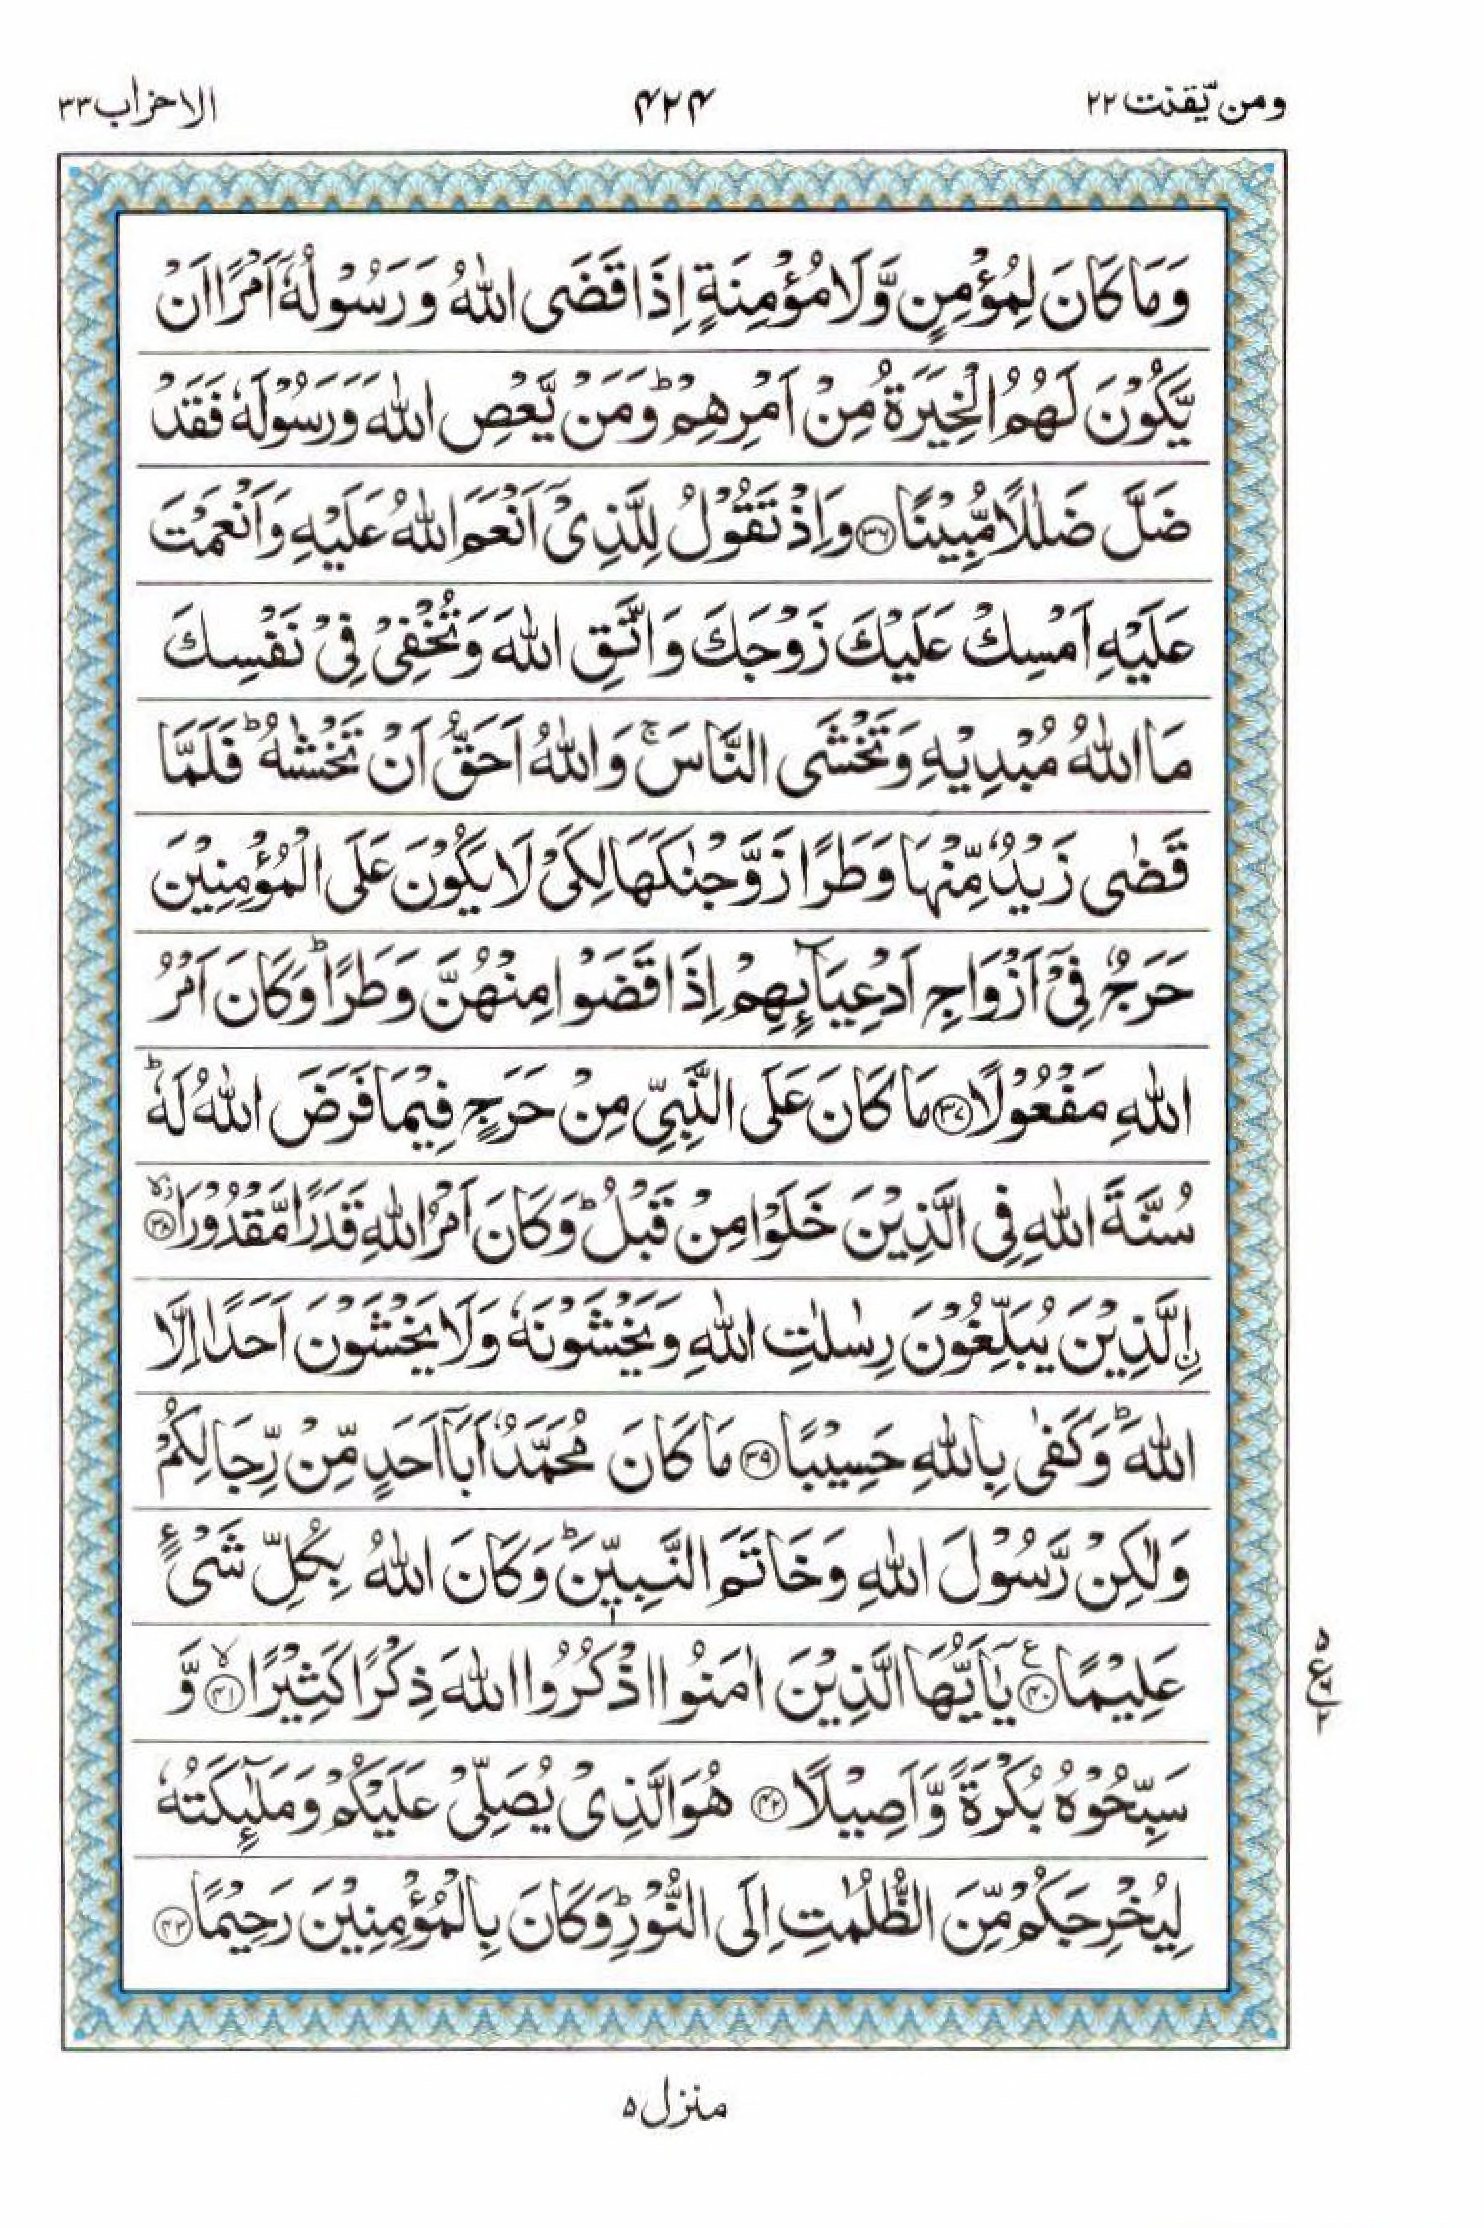 ومن یّقنت ۲۲
۴۲۴
الاحزاب ۳۳
وَمَا كَانَ لِمُؤْمِنٍ وَّلَا مُؤْمِنَةٍ اِذَا قَضَى اللّٰهُ وَرَسُوْلُهٗۤ اَمْرًا اَنْ
يَّكُوْنَ لَهُمُ الْخِيَرَةُ مِنْ اَمْرِهِمْ ؕ وَمَنْ يَّعْصِ اللّٰهَ وَرَسُوْلَهٗ فَقَدْ
ضَلَّ ضَلٰلًا مُّبِيْنًا ۳۶ وَاِذْ تَقُوْلُ لِلَّذِيْۤ اَنْعَمَ اللّٰهُ عَلَيْهِ وَاَنْعَمْتَ
عَلَيْهِ اَمْسِكْ عَلَيْكَ زَوْجَكَ وَاتَّقِ اللّٰهَ وَتُخْفِيْ فِيْ نَفْسِكَ
مَا اللّٰهُ مُبْدِيْهِ وَتَخْشَى النَّاسَ ۚ وَاللّٰهُ اَحَقُّ اَنْ تَخْشٰىهُ ؕ فَلَمَّا
قَضٰى زَيْدٌ مِّنْهَا وَطَرًا زَوَّجْنٰكَهَا لِكَيْ لَا يَكُوْنَ عَلَى الْمُؤْمِنِيْنَ
حَرَجٌ فِيْۤ اَزْوَاجِ اَدْعِيَآىِٕهِمْ اِذَا قَضَوْا مِنْهُنَّ وَطَرًا ؕ وَكَانَ اَمْرُ
اللّٰهِ مَفْعُوْلًا ۳۷ مَا كَانَ عَلَى النَّبِيِّ مِنْ حَرَجٍ فِيْمَا فَرَضَ اللّٰهُ لَهٗ ؕ
سُنَّةَ اللّٰهِ فِي الَّذِيْنَ خَلَوْا مِنْ قَبْلُ ؕ وَكَانَ اَمْرُ اللّٰهِ قَدَرًا مَّقْدُوْرَا ۳۸
اِ۟لَّذِيْنَ يُبَلِّغُوْنَ رِسٰلٰتِ اللّٰهِ وَيَخْشَوْنَهٗ وَلَا يَخْشَوْنَ اَحَدًا اِلَّا
اللّٰهَ ؕ وَكَفٰى بِاللّٰهِ حَسِيْبًا ۳۹ مَا كَانَ مُحَمَّدٌ اَبَاۤ اَحَدٍ مِّنْ رِّجَالِكُمْ
وَلٰكِنْ رَّسُوْلَ اللّٰهِ وَخَاتَمَ النَّبِيّٖنَ ؕ وَكَانَ اللّٰهُ بِكُلِّ شَيْءٍ
عَلِيْمًا ۴۰ يٰۤاَيُّهَا الَّذِيْنَ اٰمَنُوا اذْكُرُوا اللّٰهَ ذِكْرًا كَثِيْرًا ۴۱ وَّ
سَبِّحُوْهُ بُكْرَةً وَّاَصِيْلًا ۴۲ هُوَ الَّذِيْ يُصَلِّيْ عَلَيْكُمْ وَمَلٰٓىِٕكَتُهٗ
لِيُخْرِجَكُمْ مِّنَ الظُّلُمٰتِ اِلَى النُّوْرِ ؕ وَكَانَ بِالْمُؤْمِنِيْنَ رَحِيْمًا ۴۳
۵
ع ۶
۲
منزل ۵